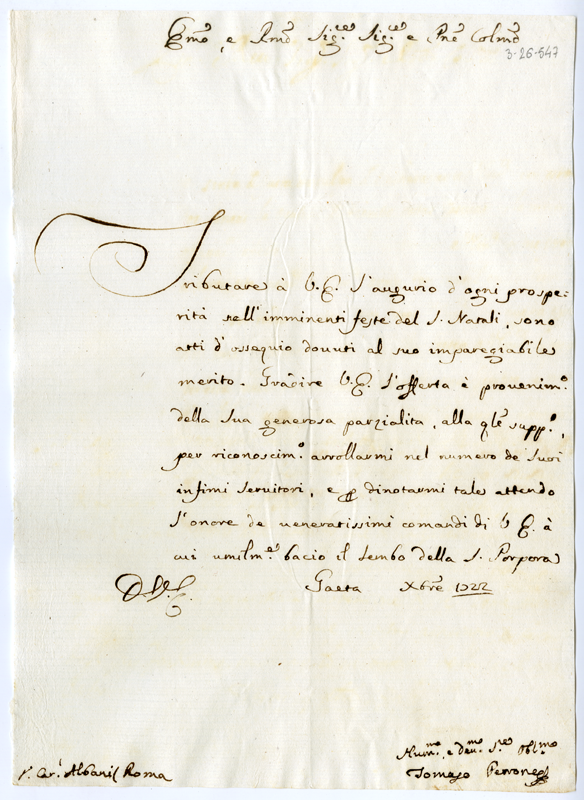 Emo, e Rmo Sigre Sigre e Pne Colmo
3-26-547
Tributare à V. E. l'augurio d'ogni prospe-
rità nell'imminenti feste del S. Natali, sono
atti d'ossequio douuti al suo impareggiabile
merito. Gradire V. E. l'offerta è provenimo
della Sua generosa parzialita, alla qle suppo,
per riconoscimo arrollarmi nel numero de Suoi
infimi Servitori, e p dinotarmi tale attendo
l'onore de ueneratissimi comandi di V. E. à
cui umilme bacio il lembo della S. Porpora
D. V. E.
Gaeta Xbre 1722
Humo e deuo Sre Oblmo
Tomaso Perrone
Carl Albani Roma